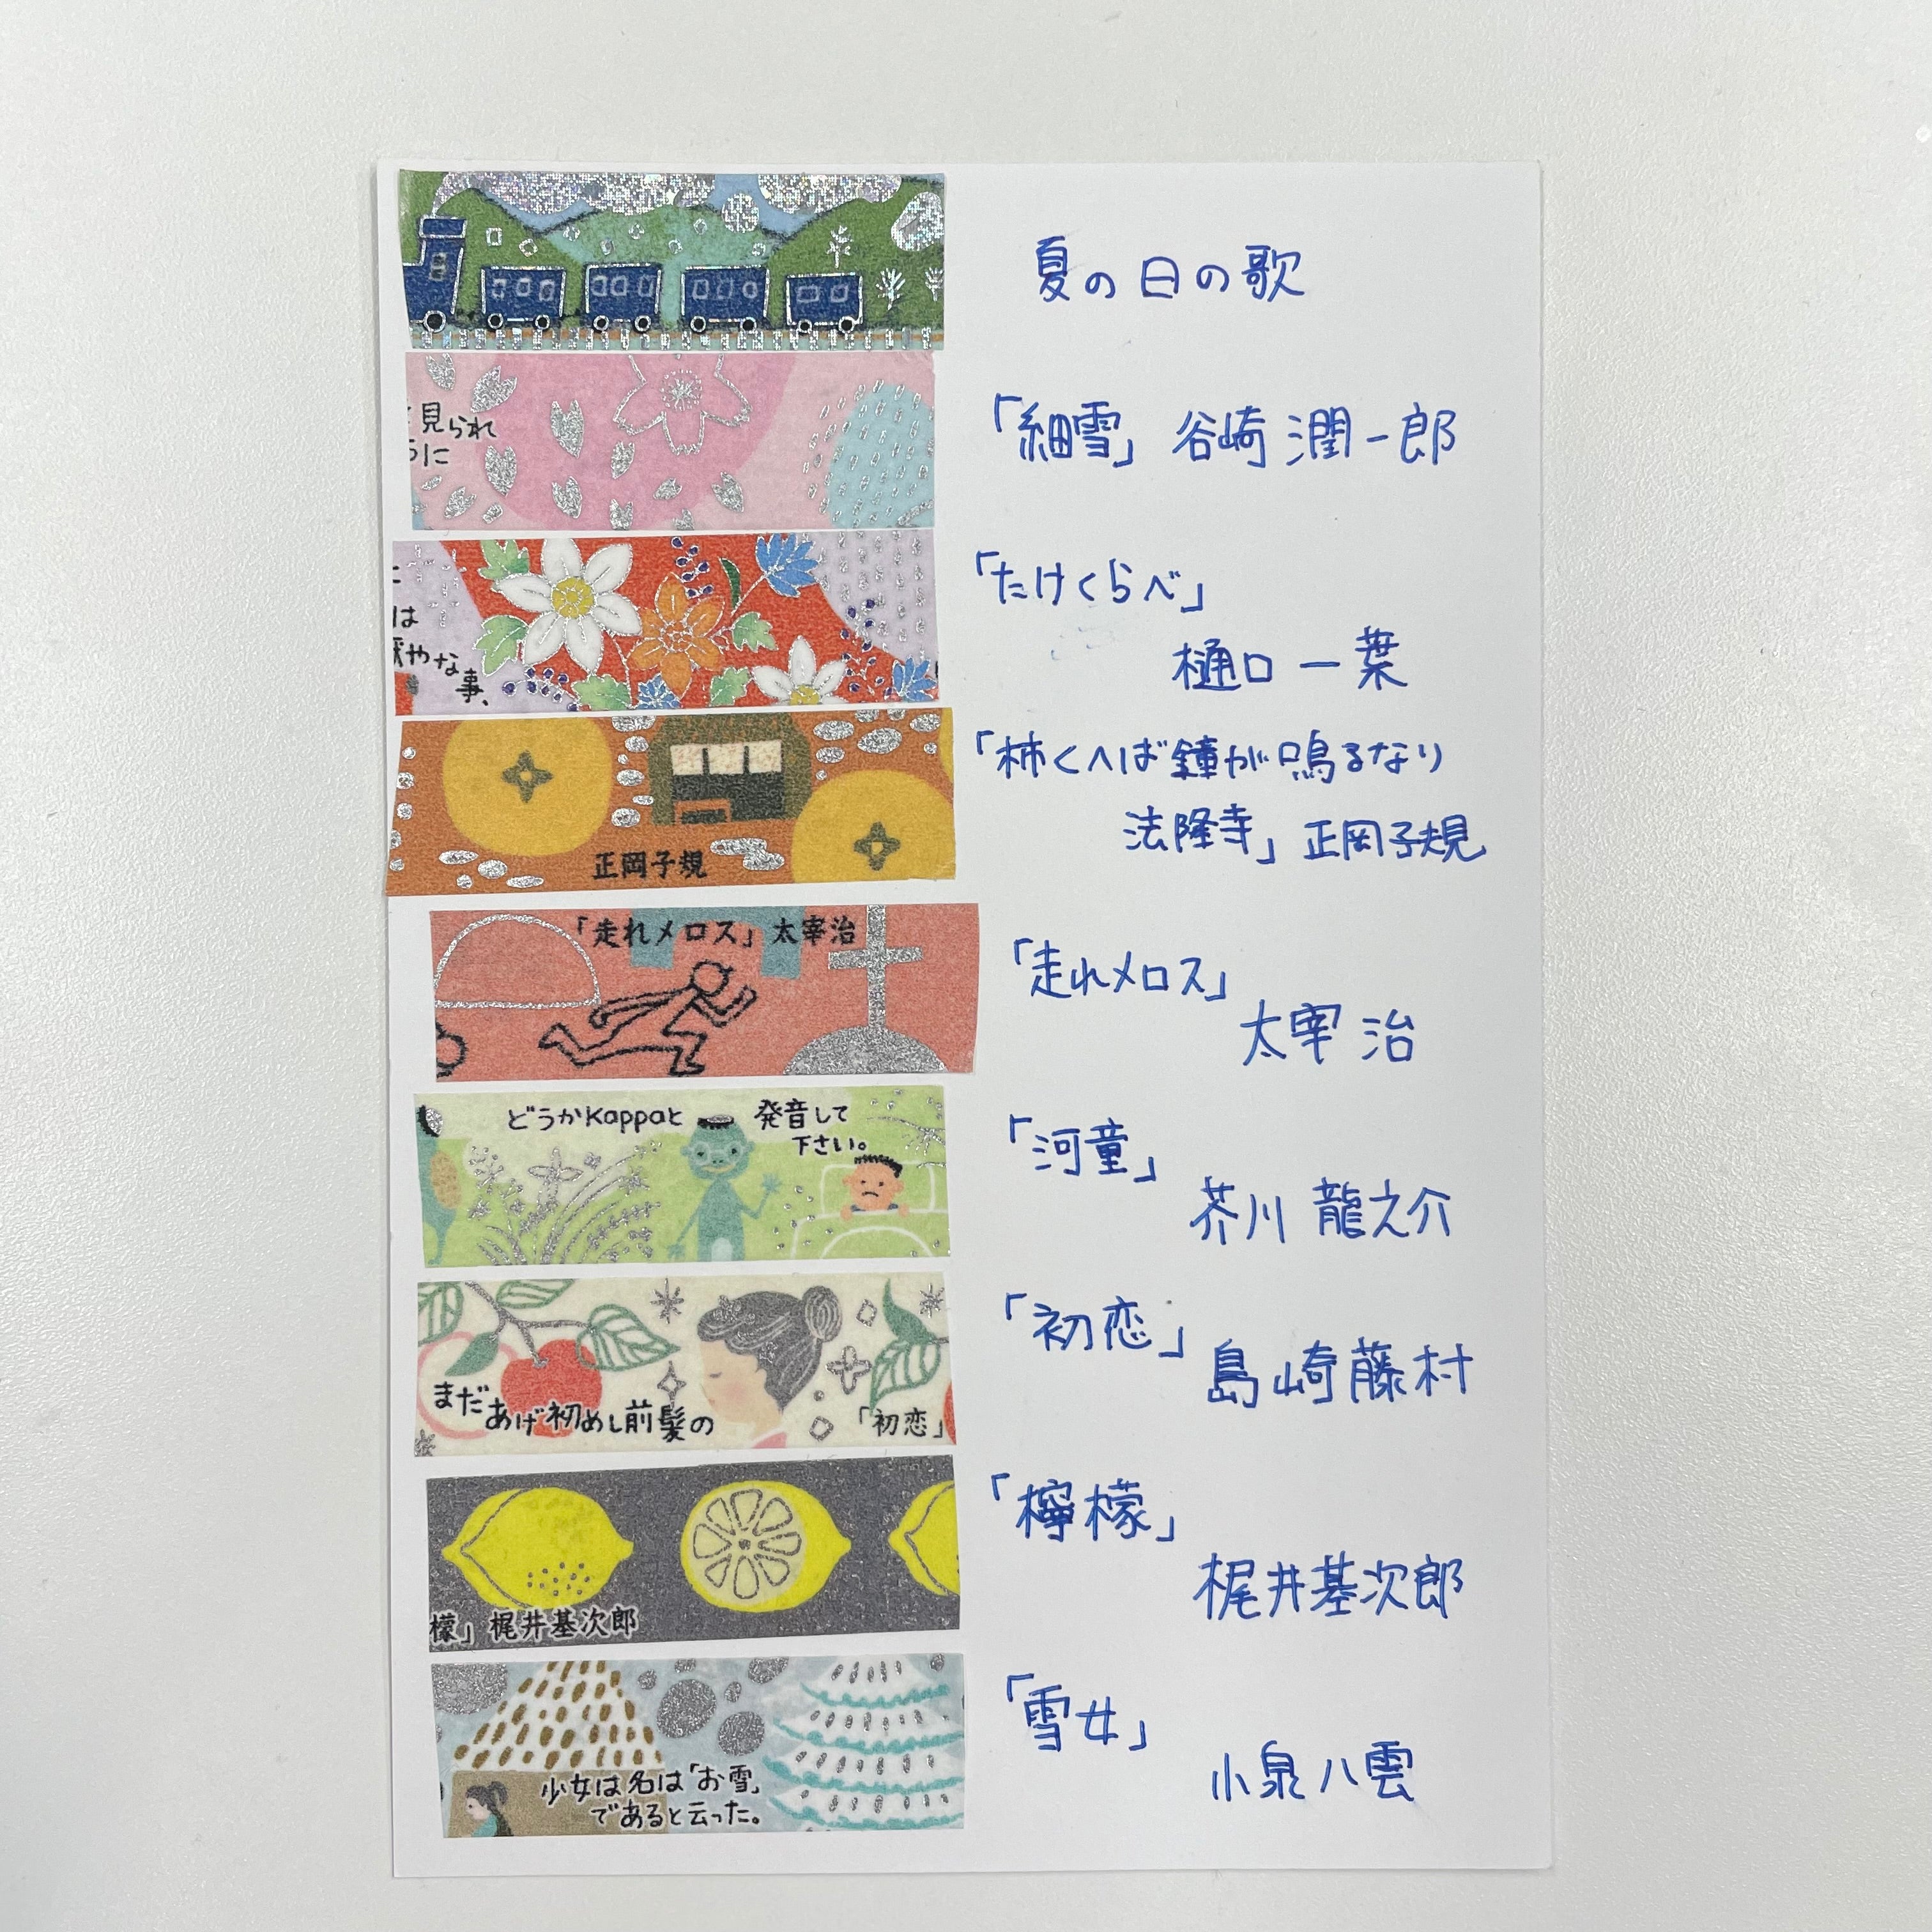 夏の日の歌
見られ
うに
「細雪」谷崎潤一郎
は
厭やな事、
「たけくらべ」
樋口一葉
正岡子規
「柿くへば鐘が鳴るなり
法隆寺」正岡子規
「走れメロス」太宰治
「走れメロス」
太宰治
どうかKappaと発音して
下さい。
「河童」
芥川龍之介
まだあげ初めし前髪の
「初恋」
「初恋」
島崎藤村
檬」梶井基次郎
「檸檬」
梶井基次郎
少女は名は「お雪」
であると云った。
「雪女」
小泉八雲